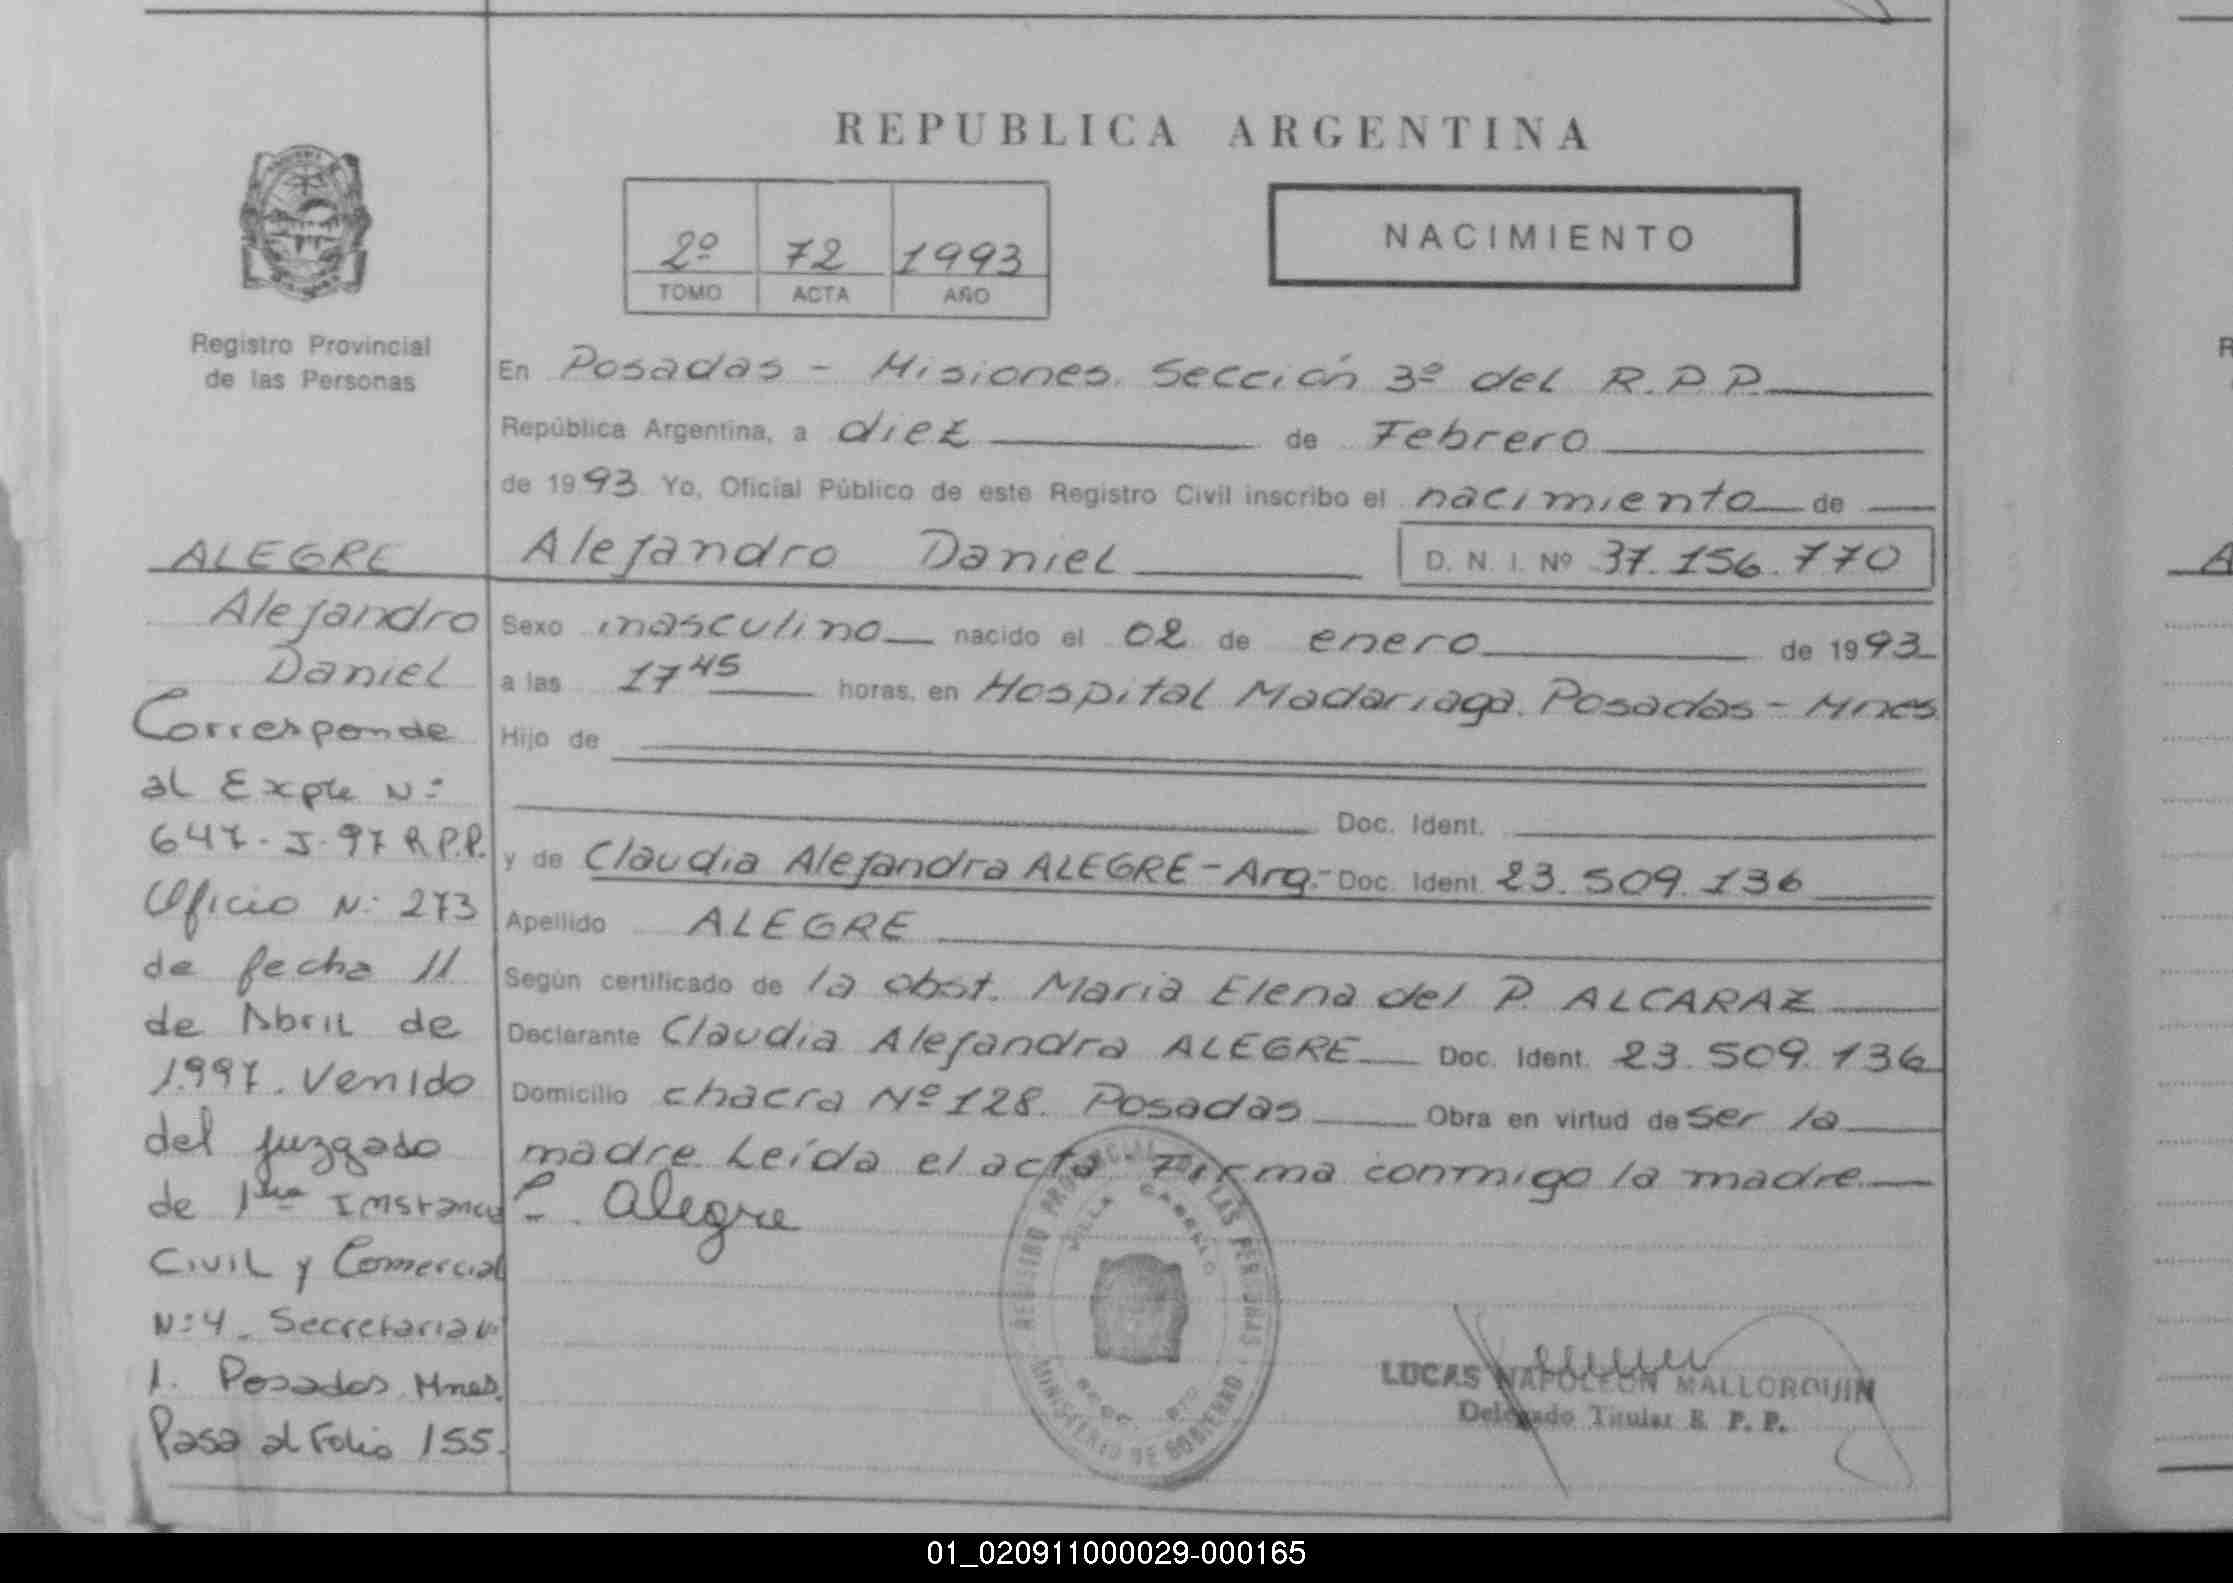 REPUBLICA ARGENTINA
2º 72 1993
TOMO ACTA AÑO
NACIMIENTO
Registro Provincial
de las Personas
En Posadas - Misiones. Sección 3º del R.P.P.
República Argentina, a diez de Febrero
de 1993 Yo, Oficial Público de este Registro Civil inscribo el nacimiento de
Alejandro Daniel D. N. I. Nº 37.156.770
Sexo masculino nacido el 02 de enero de 1993
a las 17 45 horas, en Hospital Madariaga. Posadas - Mnes
Hijo de
Doc. Ident.
y de Claudia Alejandra ALEGRE - Arg.- Doc. Ident. 23.509.136
Apellido ALEGRE
Según certificado de la obst. Maria Elena del P. ALCARAZ
Declarante Claudia Alejandra ALEGRE Doc. Ident. 23.509.136
Domicilio chacra Nº 128. Posadas Obra en virtud de ser la
madre. Leída el acta Firma conmigo la madre.
C. Alegre
ALEGRE
Alejandro
Daniel
Corresponde
al Expte N:
647-J-97 R.P.P.
Oficio N: 273
de fecha 11
de Abril de
1.997. Venido
del Juzgado
de 1ra Instancia
Civil y Comercial
N:4. Secretaria N:
1. Posadas Mnes.
Pasa al Folio 155.
REGISTRO PROVINCIAL DE LAS PERSONAS
VILLA CABELLO
MINISTERIO DE GOBIERNO
LUCAS NAPOLEON MALLORQUIN
Delegado Titular R. P. P.
01_020911000029-000165